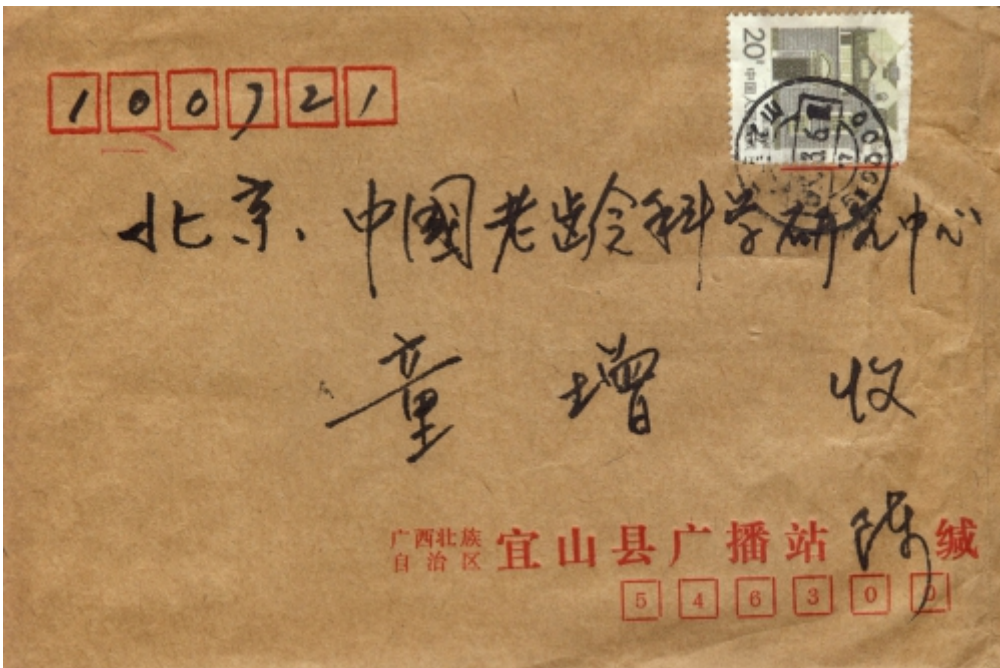 100721
20分
中国人
北京、中國老龄科学研究中心
童增 收
广西壮族自治区 宜山县广播站 陈 缄
546300